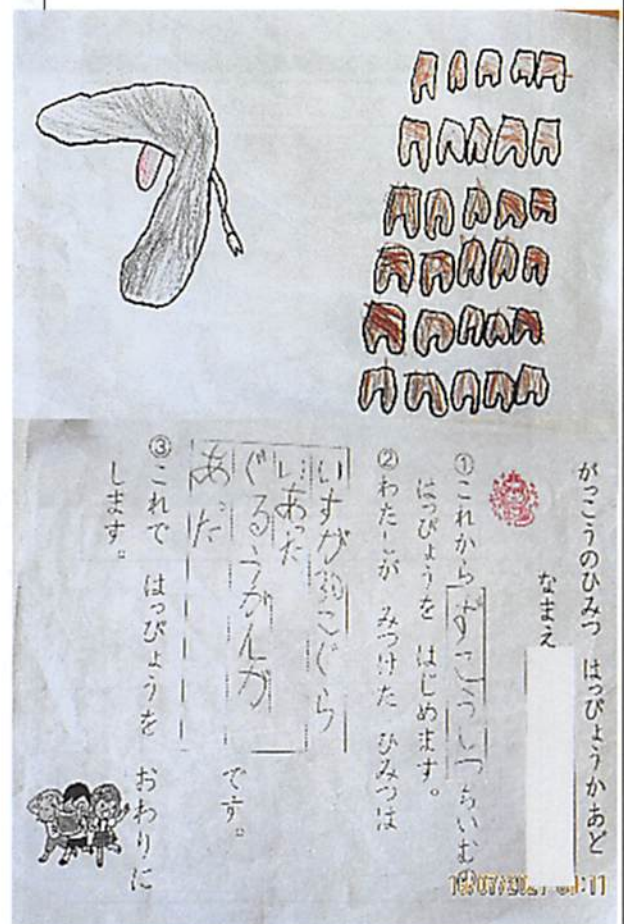 がっこうのひみつ はっぴょうかあど
なまえ
①これから ずこうしつちいむの
はっぴょうを はじめます。
②わたしが みつけた ひみつは
いすが30こぐら
いあった
ぐるうがんが
あった
です。
③これで はっぴょうを おわりに
します。